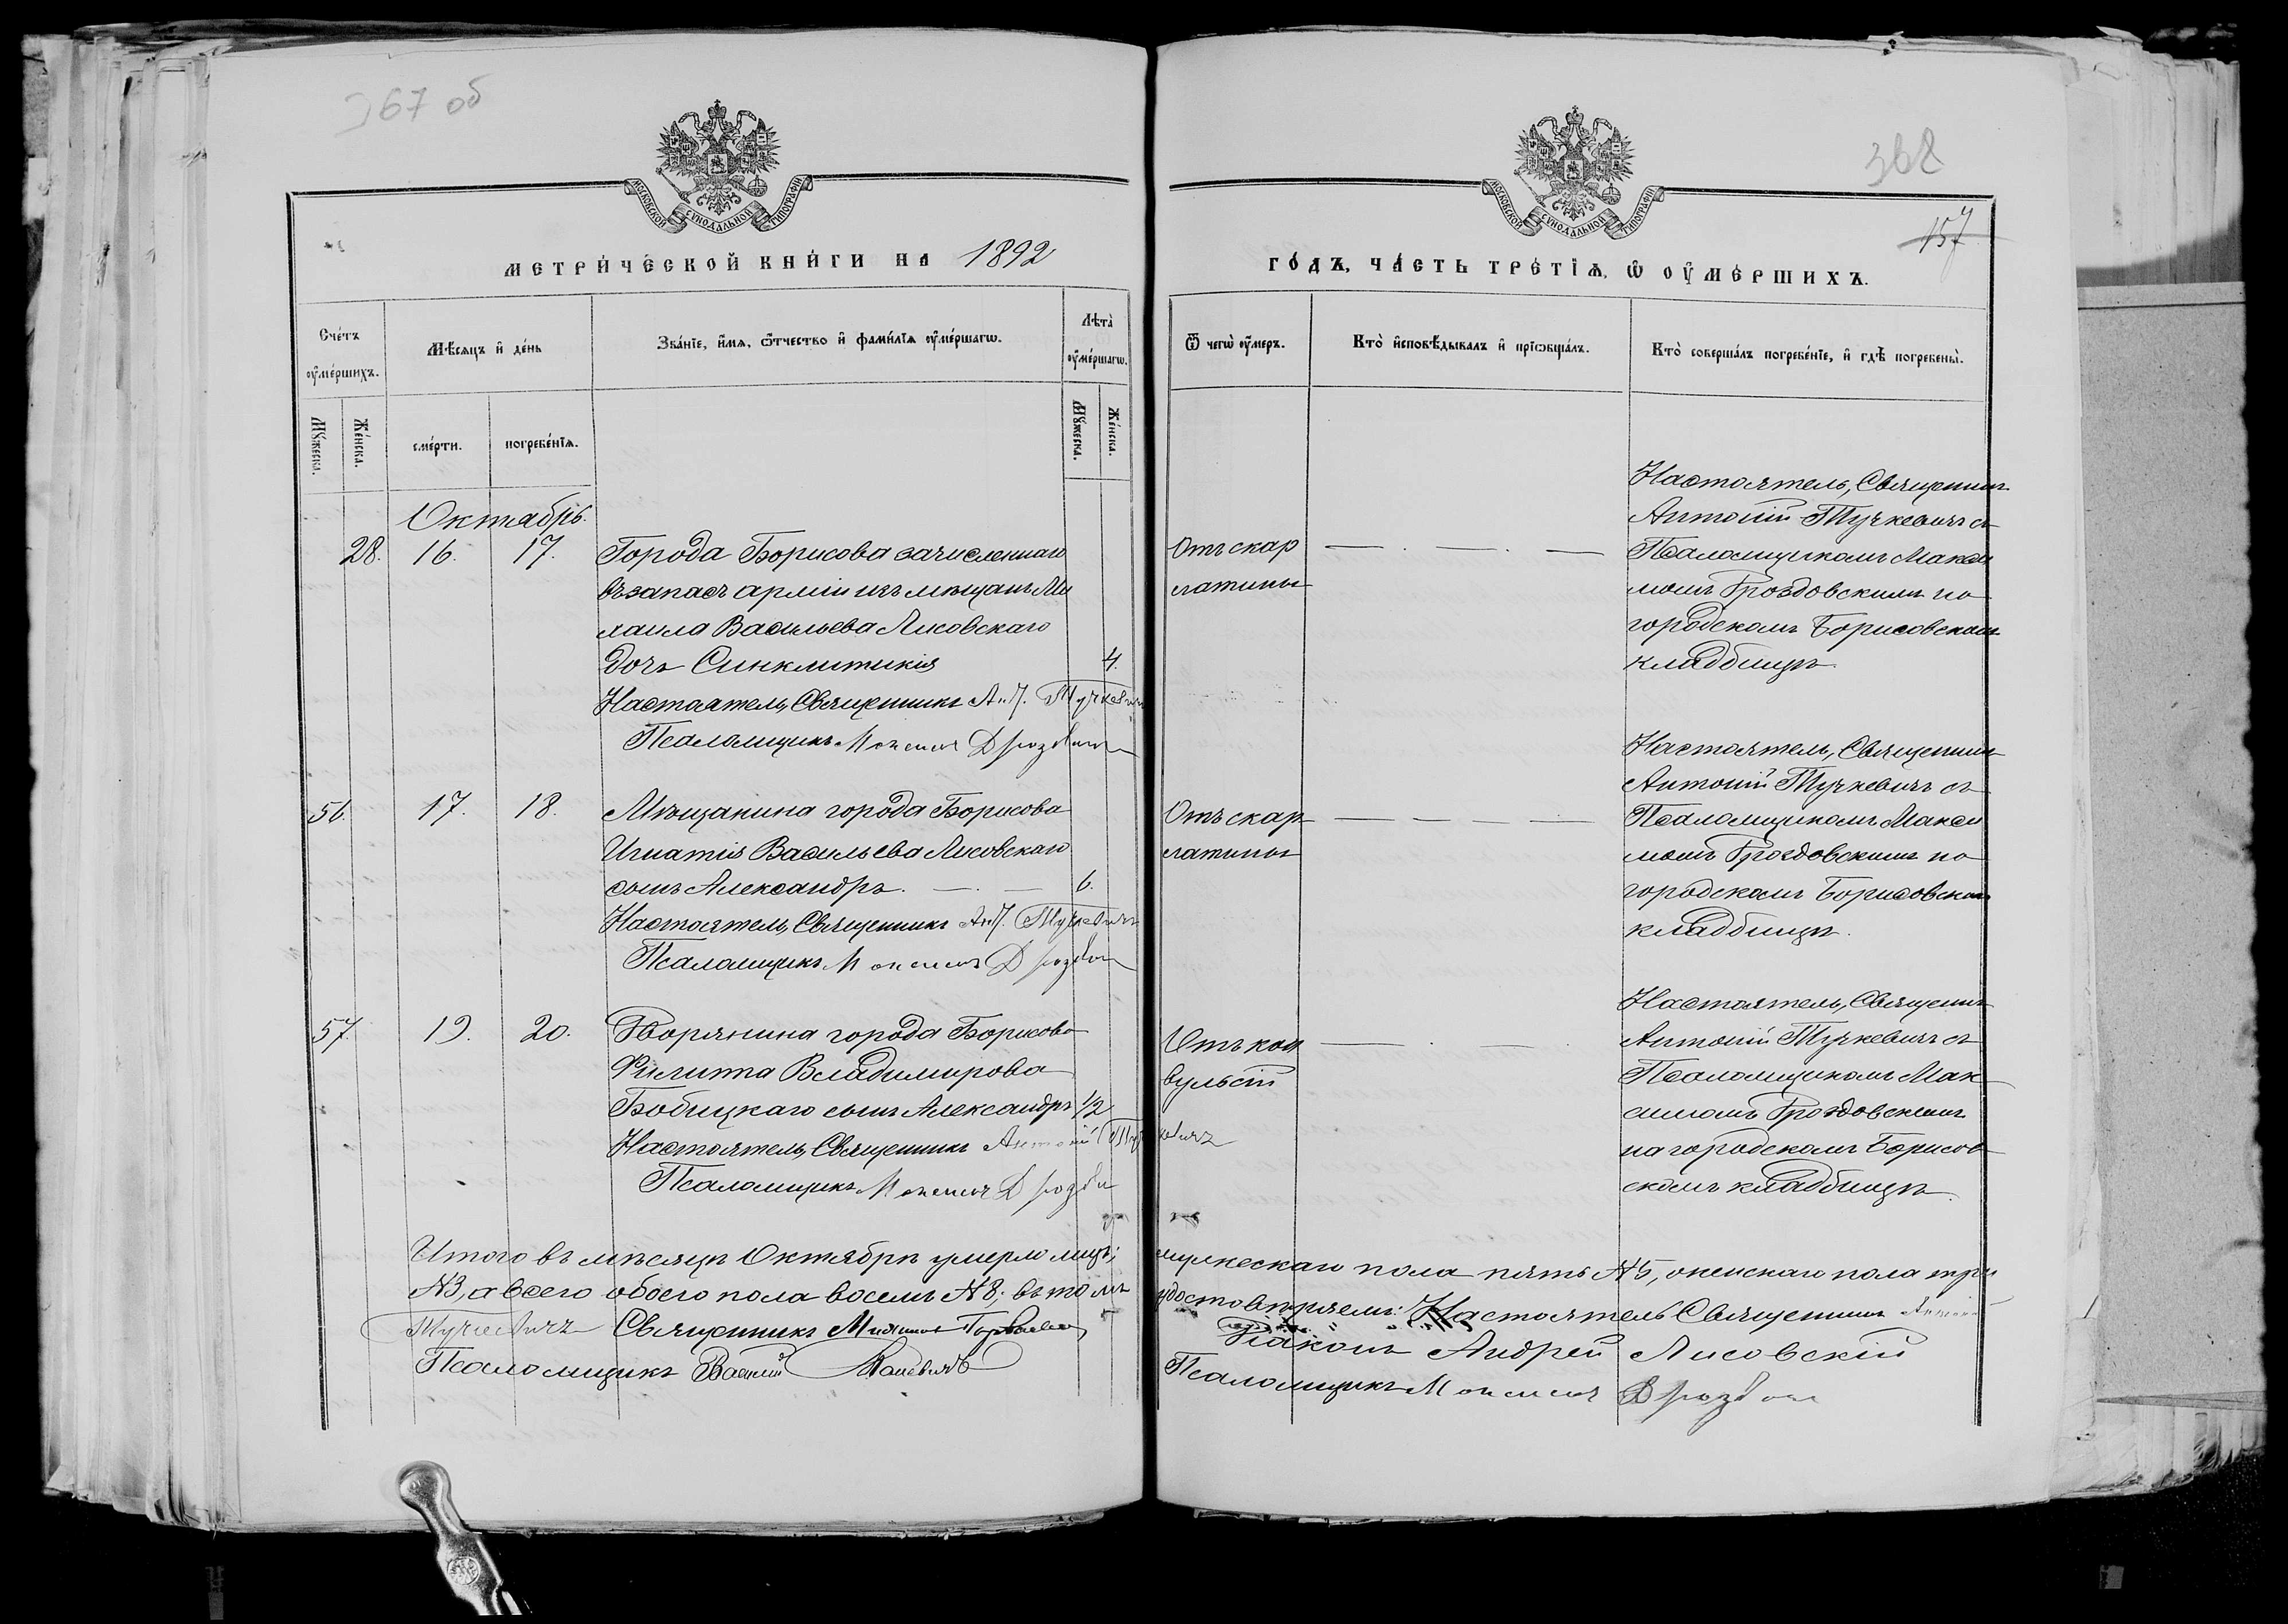 367 об
МОСКОВСКОЙ СУНОДАЛЬНОЙ ТИПОГРАФІИ
МЕТРИ́ЧЕСКОЙ КНИ́ГИ НА 1892
Сче́тъ ᲂу҆ме́ршихъ.
Мѣ́сяцъ и҆ де́нь
Зва́нїе, и҆́мя, ѻ҆́тчество и҆ фами́лїя ᲂу҆ме́ршагѡ.
Лѣта̀ ᲂу҆ме́ршагѡ.
Мꙋ́жеска.
Же́нска.
сме́рти.
погребе́нїѧ.
Мꙋ́жеска.
Же́нска.
Октябрь.
28. 16. 17. Города Борисова зачисленнаго
въ запасъ арміи изъ мѣщанъ Ми
хаила Васильева Лисовскаго
дочь Синклитикія 4.
Настоятель, Священникъ Ант. Тучкевичъ
Псаломщикъ Максимъ Дроздов
56. 17. 18. Мѣщанина города Борисова
Игнатія Васильева Лисовскаго
сынъ Александръ. 6.
Настоятель, Священникъ Ант. Тучкевичъ
Псаломщикъ Максимъ Дроздов
57. 19. 20. Дворянина города Борисова
Филиппа Владимирова
Бобицкаго сынъ Александръ 1/2
Настоятель, Священникъ Антоній Тучкевичъ
Псаломщикъ Максимъ Дроздов
Итого въ мѣсяцѣ Октябрѣ умерло лицъ;
№3, а всего обоего пола восемь №8; въ томъ
Тучкевичъ Священникъ
Псаломщикъ Василій
368
157
МОСКОВСКОЙ СУНОДАЛЬНОЙ ТИПОГРАФІИ
ГО́ДЪ, ЧА́СТЬ ТРЕ́ТЇѦ, Ѡ҆ ОУ҆МЕ́РШИХЪ.
Ѿ чегѡ̀ ᲂу҆́меръ.
Кто̀ и҆сповѣ́дывалъ и҆ прїѡбща́лъ.
Кто̀ соверша́лъ погребе́нїе, и҆ гдѣ̀ погребены̀.
Отъ скар
латины
Настоятель, Священникъ
Антоній Тучкевичъ съ
Псаломщикомъ Макси
момъ Дроздовскимъ на
городскомъ Борисовскомъ
кладбищѣ.
Отъ скар
латины
Настоятель, Священникъ
Антоній Тучкевичъ съ
Псаломщикомъ Макси
момъ Дроздовскимъ на
городскомъ Борисовскомъ
кладбищѣ.
Отъ кон
вульсій
Настоятель, Священникъ
Антоній Тучкевичъ съ
Псаломщикомъ Мак
симомъ Дроздовскимъ
на городскомъ Борисов
скомъ кладбищѣ.
мужескаго пола пять №5, женскаго пола три
удостовѣряемъ: Настоятель Священникъ Антоній
Діаконъ Андрей Лисовскій
Псаломщикъ Максимъ Дроздов